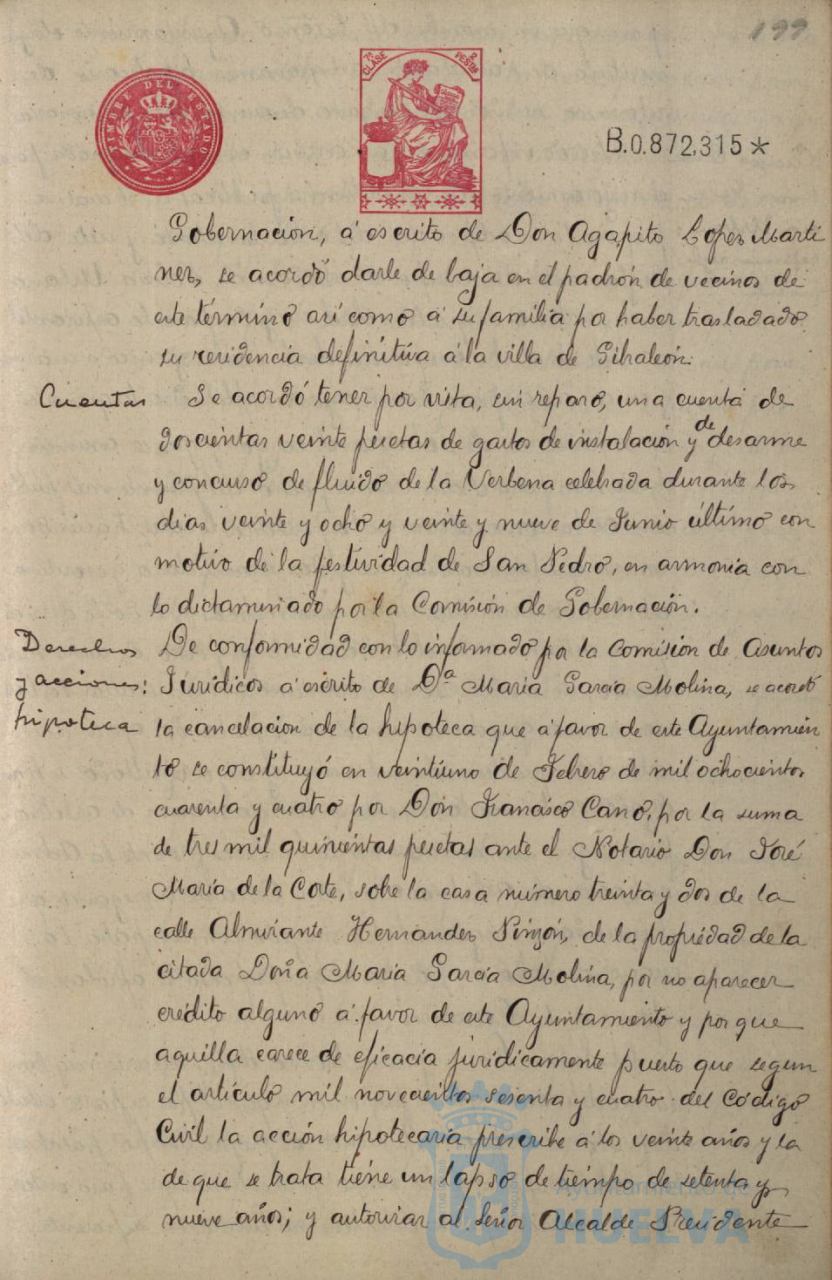 199
TIMBRE DEL ESTADO
7ª CLASE
2 PESETAS
B.0.872,315*
Gobernación, á escrito de Don Agapito Lopez Marti
nez, se acordó darle de baja en el padrón de vecinos de
este término así como á su familia por haber trasladado
su residencia definitiva á la villa de Gibraleón.
Cuentas Se acordó tener por vista, sin reparo, una cuenta de
doscientas veinte pesetas de gastos de instalación y de desarme
y concurso de fluido de la Verbena celebrada durante los
dias veinte y ocho y veinte y nueve de Junio último con
motivo de la festividad de San Pedro, en armonia con
lo dictaminado por la Comisión de Gobernación.
Derechos De conformidad con lo informado por la Comisión de Asuntos
y acciones: Jurídicos á escrito de Dª Maria Garcia Molina, se acordó
hipoteca la cancelacion de la hipoteca que á favor de este Ayuntamien
to se constituyó en veintiuno de Febrero de mil ochocientos
cuarenta y cuatro por Don Francisco Cano, por la suma
de tres mil quinientas pesetas ante el Notario Don José
María de la Corte, sobre la casa número treinta y dos de la
calle Almirante Hernandez Pinzón, de la propiedad de la
citada Doña Maria Garcia Molina, por no aparecer
crédito alguno á favor de este Ayuntamiento y por que
aquilla carece de eficacia jurídicamente puesto que segun
el artículo mil novecientos sesenta y cuatro del Código
Civil la acción hipotecaria prescribe á los veinte años y la
de que se trata tiene un lapso de tiempo de setenta y
nueve años; y autorizar al Señor Alcalde Presidente
Ayuntamiento de
HUELVA